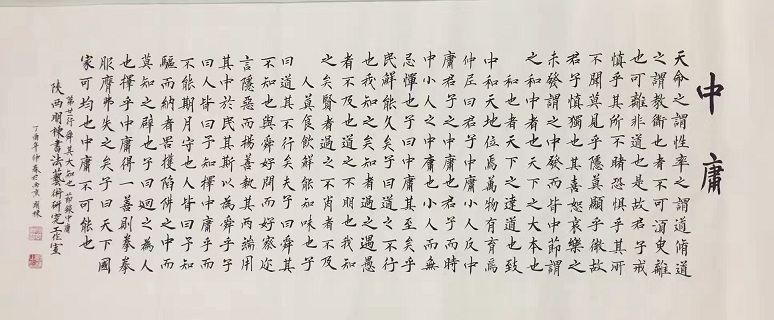 中庸
天命之謂性率之謂道脩道
之謂教衟也者不可須臾離
也可離非道也是故君子戒
慎乎其所不睹恐懼乎其所
不聞莫見乎隱莫顯乎微故
君子慎獨也其喜怒哀樂之
未發謂之中發而皆中節謂
之和中也者天下之大本也
和也者天下之達道也致
中和天地位焉萬物有育焉
仲尼曰君子中庸小人反中
庸君子之中庸也君子而時
中小人之中庸也小人而無
忌憚也子曰中庸其至矣乎
民鮮能久矣子曰道之不行
也我知之矣知者過之過愚
者不及也道之不明也我知
之矣賢者過之不肖者不及
人莫食飲鮮能知味也子
曰道其不行矣夫子曰舜其
不知也與舜好問而好察迩
言隱惡而揚善執其兩端用
其中於民其斯以為舜乎子
曰人皆曰予知擇中庸乎而
不能期月守也人皆曰予知
驅而納者罟擭陷阱之中而
莫知之辟也子曰迴之為人
也擇乎中庸得一善則拳拳
服膺弗失之矣子曰天下國
家可均也中庸不可能也
第廿行舜其大知也 節錄中庸
陝西周棟書法藝術研究工作室
丁酉年仲春於西京 周棟